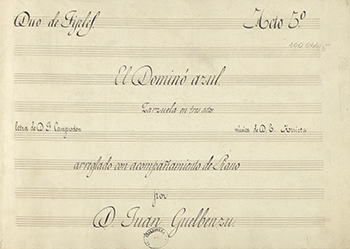 Duo de Tiples Acto 3º
El Dominó azul.
Zarzuela en tres actos
letra de D. F. Camprodon música de D. E. Arrieta
arreglado con acompañamiento de Piano
por
D. Juan Guelbenzu.